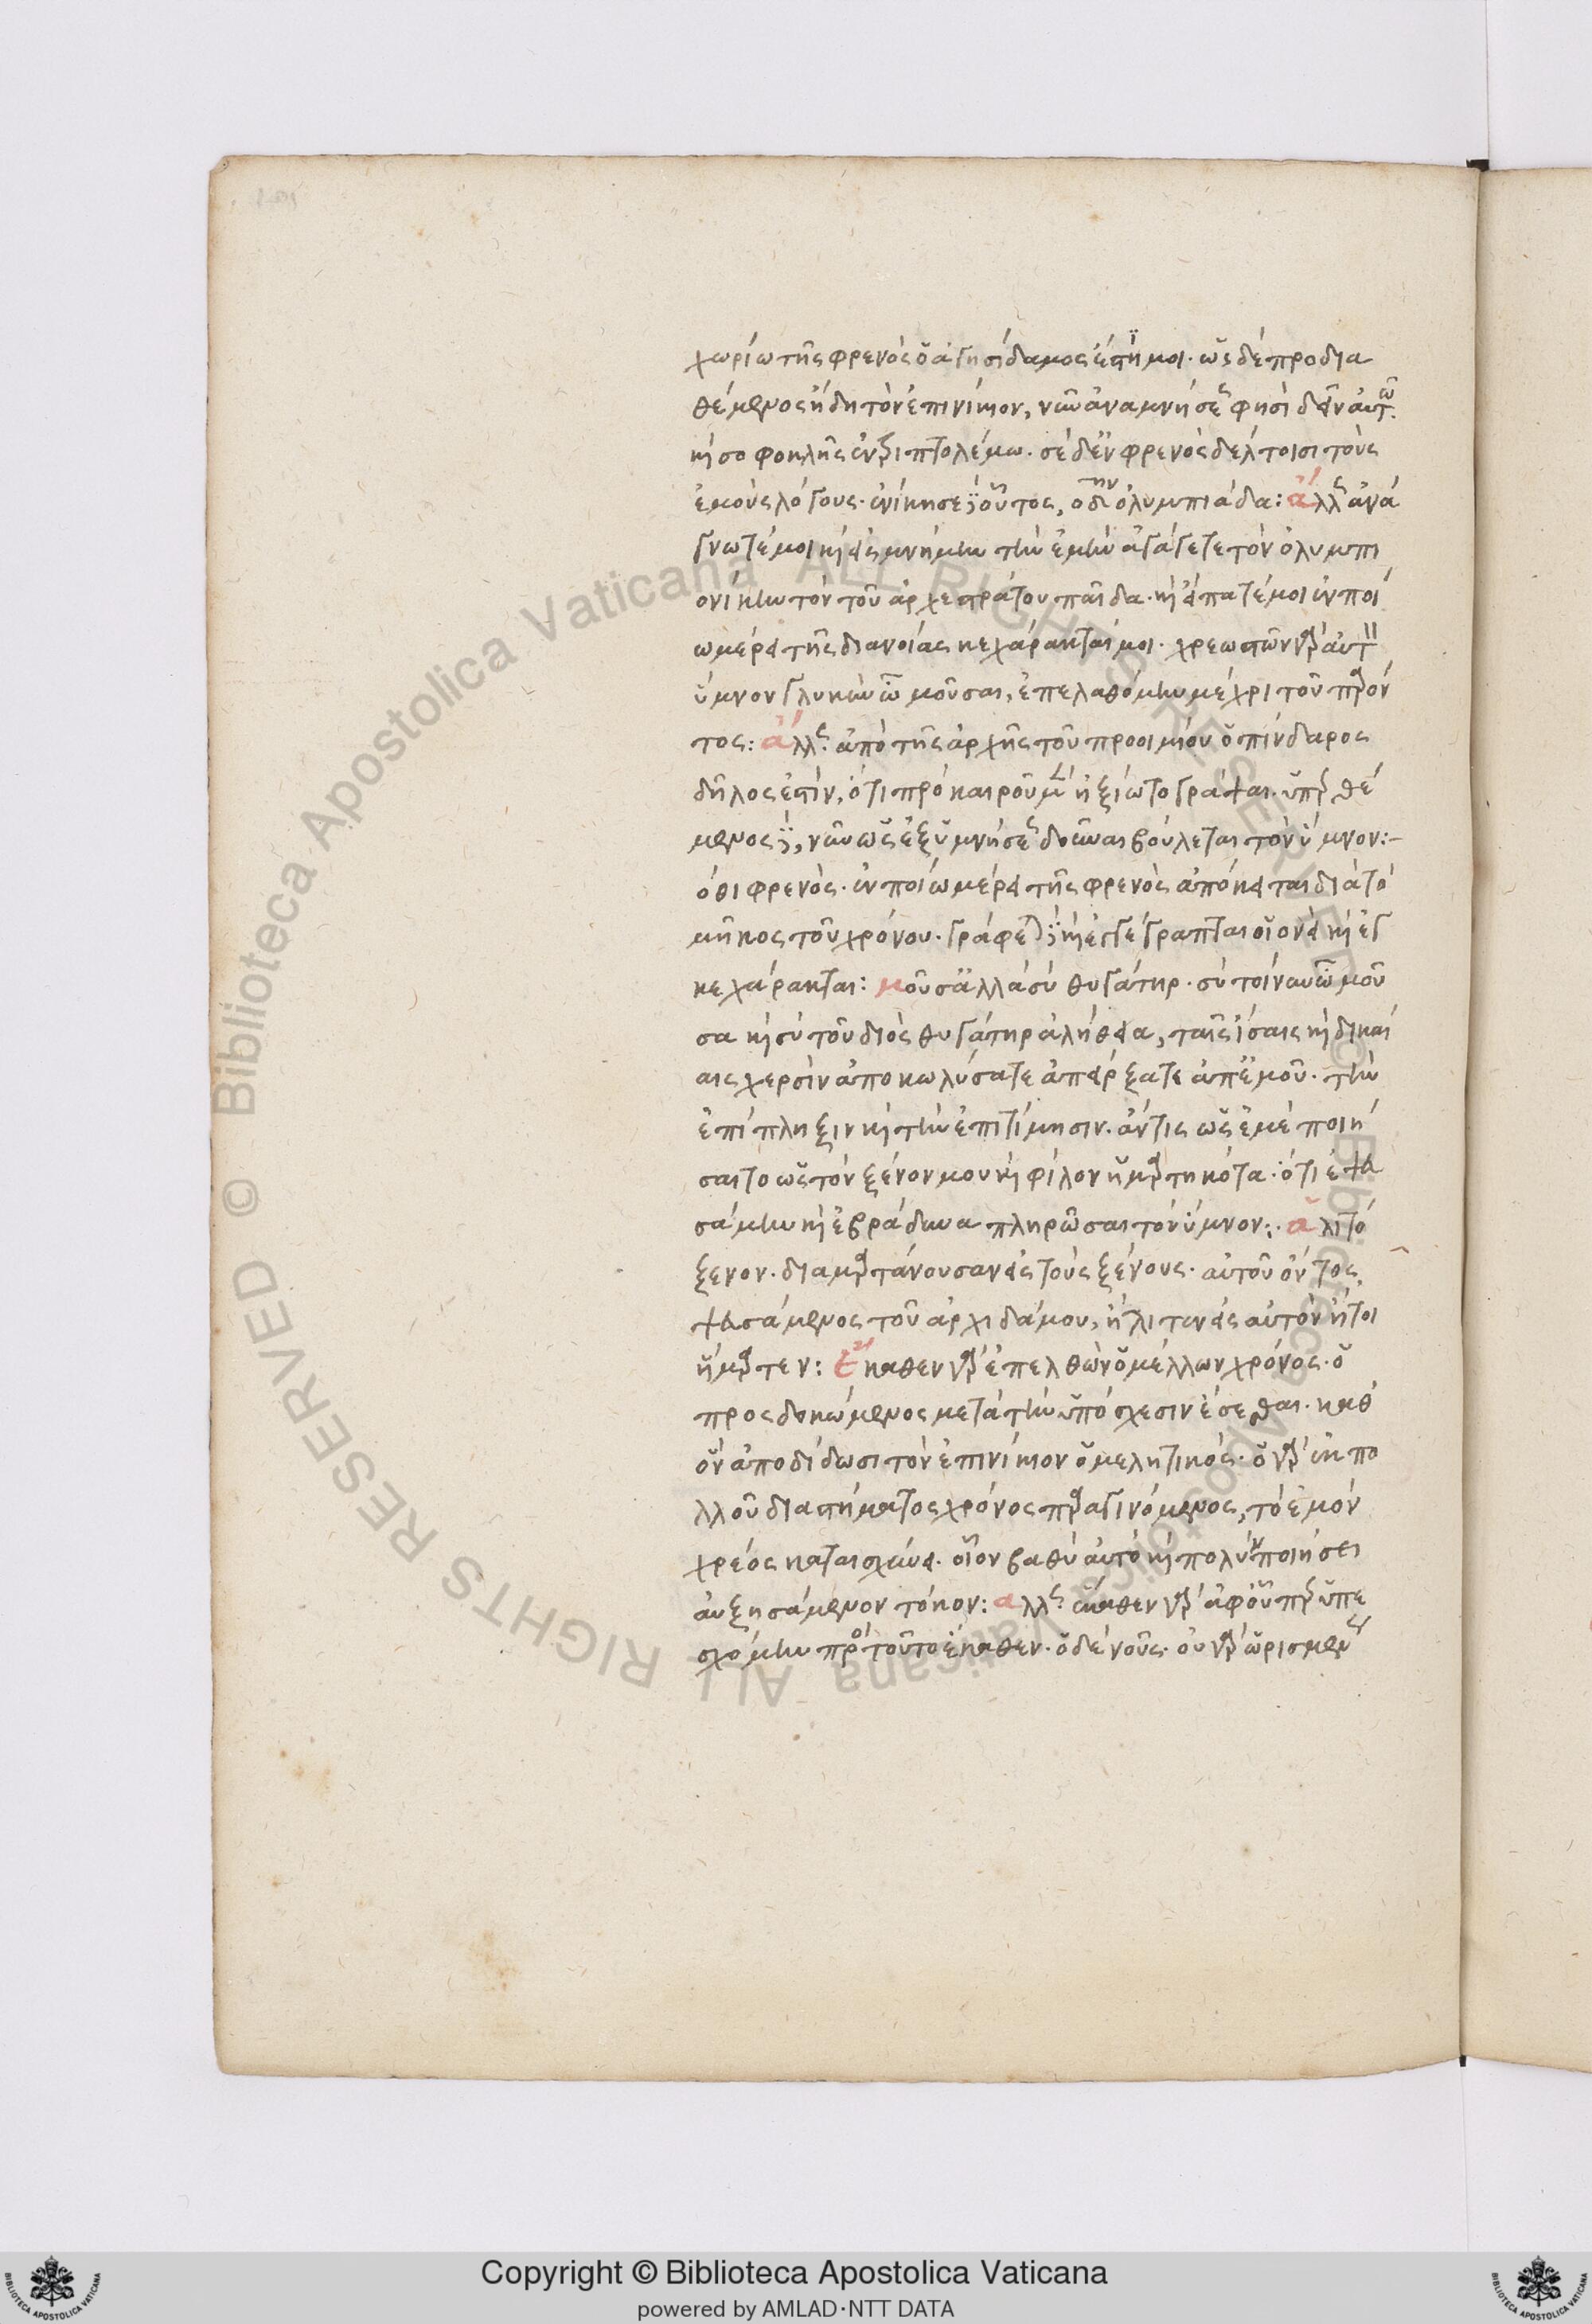 χωρίω τῆς φρενὸς ὁ ἁγησίδαμος ἐστί μοι. ὡς δὲ προδια
θέμενος ἤδη τὸν ἐπινίκιον, νῦν ἀναμνήσεως φησὶ δεῖν αὐτῶ.
καὶ σοφοκλῆς ἐν τριπτολέμω. σὲ δ' ἐν φρενὸς δέλτοισι τοὺς
ἐμοὺς λόγους. ἐνίκησε δὲ οὗτος, οδ την ὀλυμπιάδα: ἄλλως ἀνά
γνωτέ μοι καὶ εἰς μνήμην τὴν ἐμὴν ἀγάγετε τὸν ὀλυμπι
ονίκην τὸν τοῦ ἀρχεστράτου παῖδα. καὶ εἴπατέ μοι ἐν ποί
ω μέρει τῆς διανοίας κεχάρακταί μοι. χρεωστῶν γὰρ αὐτ
ὕμνον γλυκὺν ὦ μοῦσαι, ἐπελαθόμην μέχρι τοῦ παρόν
τος: ἄλλως. ἀπὸ τῆς ἀρχῆς τοῦ προοιμίου ὁ πίνδαρος
δῆλός ἐστιν, ὅτι πρὸ καιροῦ μὲν ἠξίωτο γράψαι. ὑπερθέ
μενος δὲ, νῦν ὡς ἐξ ὑμνήσεως δοῦναι βούλεται τὸν ὕμνον:-
ὅθι φρενὸς. ἐν ποίω μέρει τῆς φρενὸς ἀπόκειται διὰ τὸ
μῆκος τοῦ χρόνου. γράφεται δὲ καὶ ἐγγέγραπται οἱονεὶ καὶ ἐγ
κεχάρακται: μοῦσ' ἀλλὰ σὺ θυγάτηρ. σὺ τοίνυν ὦ μοῦ
σα καὶ σὺ τοῦ διὸς θυγάτηρ ἀλήθεια, ταῖς ἴσαις καὶ δικαί
αις χερσὶν ἀποκωλύσατε ἀπείρξατε ἀπ' ἐμοῦ. τὴν
ἐπίπληξιν καὶ τὴν ἐπιτίμησιν. ἄν τις ὡς ἐμὲ ποιή
σαιτο ὡς τὸν ξένον μου καὶ φίλον ἡμαρτηκότα. ὅτι ἐψευ
σάμην καὶ ἐβράδυνα πληρῶσαι τὸν ὕμνον:. ἀλιτό
ξενον. διαμαρτάνουσαν εἰς τοὺς ξένους. αὐτοῦ ὄντος
ψευσάμενος τοῦ ἀρχιδάμου, ἤλιτεν εἰς αὐτὸν ἤτοι
ἥμαρτεν: ἕκαθεν γὰρ ἐπελθὼν ὁ μέλλων χρόνος. ὁ
προσδοκώμενος μετὰ τὴν ὑπόσχεσιν ἔσεσθαι. καθ'
ὃν ἀποδίδωσι τὸν ἐπινίκιον ὁ μελητικός. ὁ γὰρ ἐκ πο
λλοῦ διαστήματος χρόνος παραγινόμενος, τὸ ἐμὸν
χρέος καταισχύνει. οἷον βαθὺ αὐτὸ καὶ πολὺν ποιήσει
αὐξησάμενον τόκον: ἄλλως. ἕκαθεν γὰρ ἀφ' οὗ περ ὑπε
σχόμην πρὸ τοῦτο ἕκαθεν. ὁ δὲ νοῦς. οὐ γὰρ ὡρισμένως